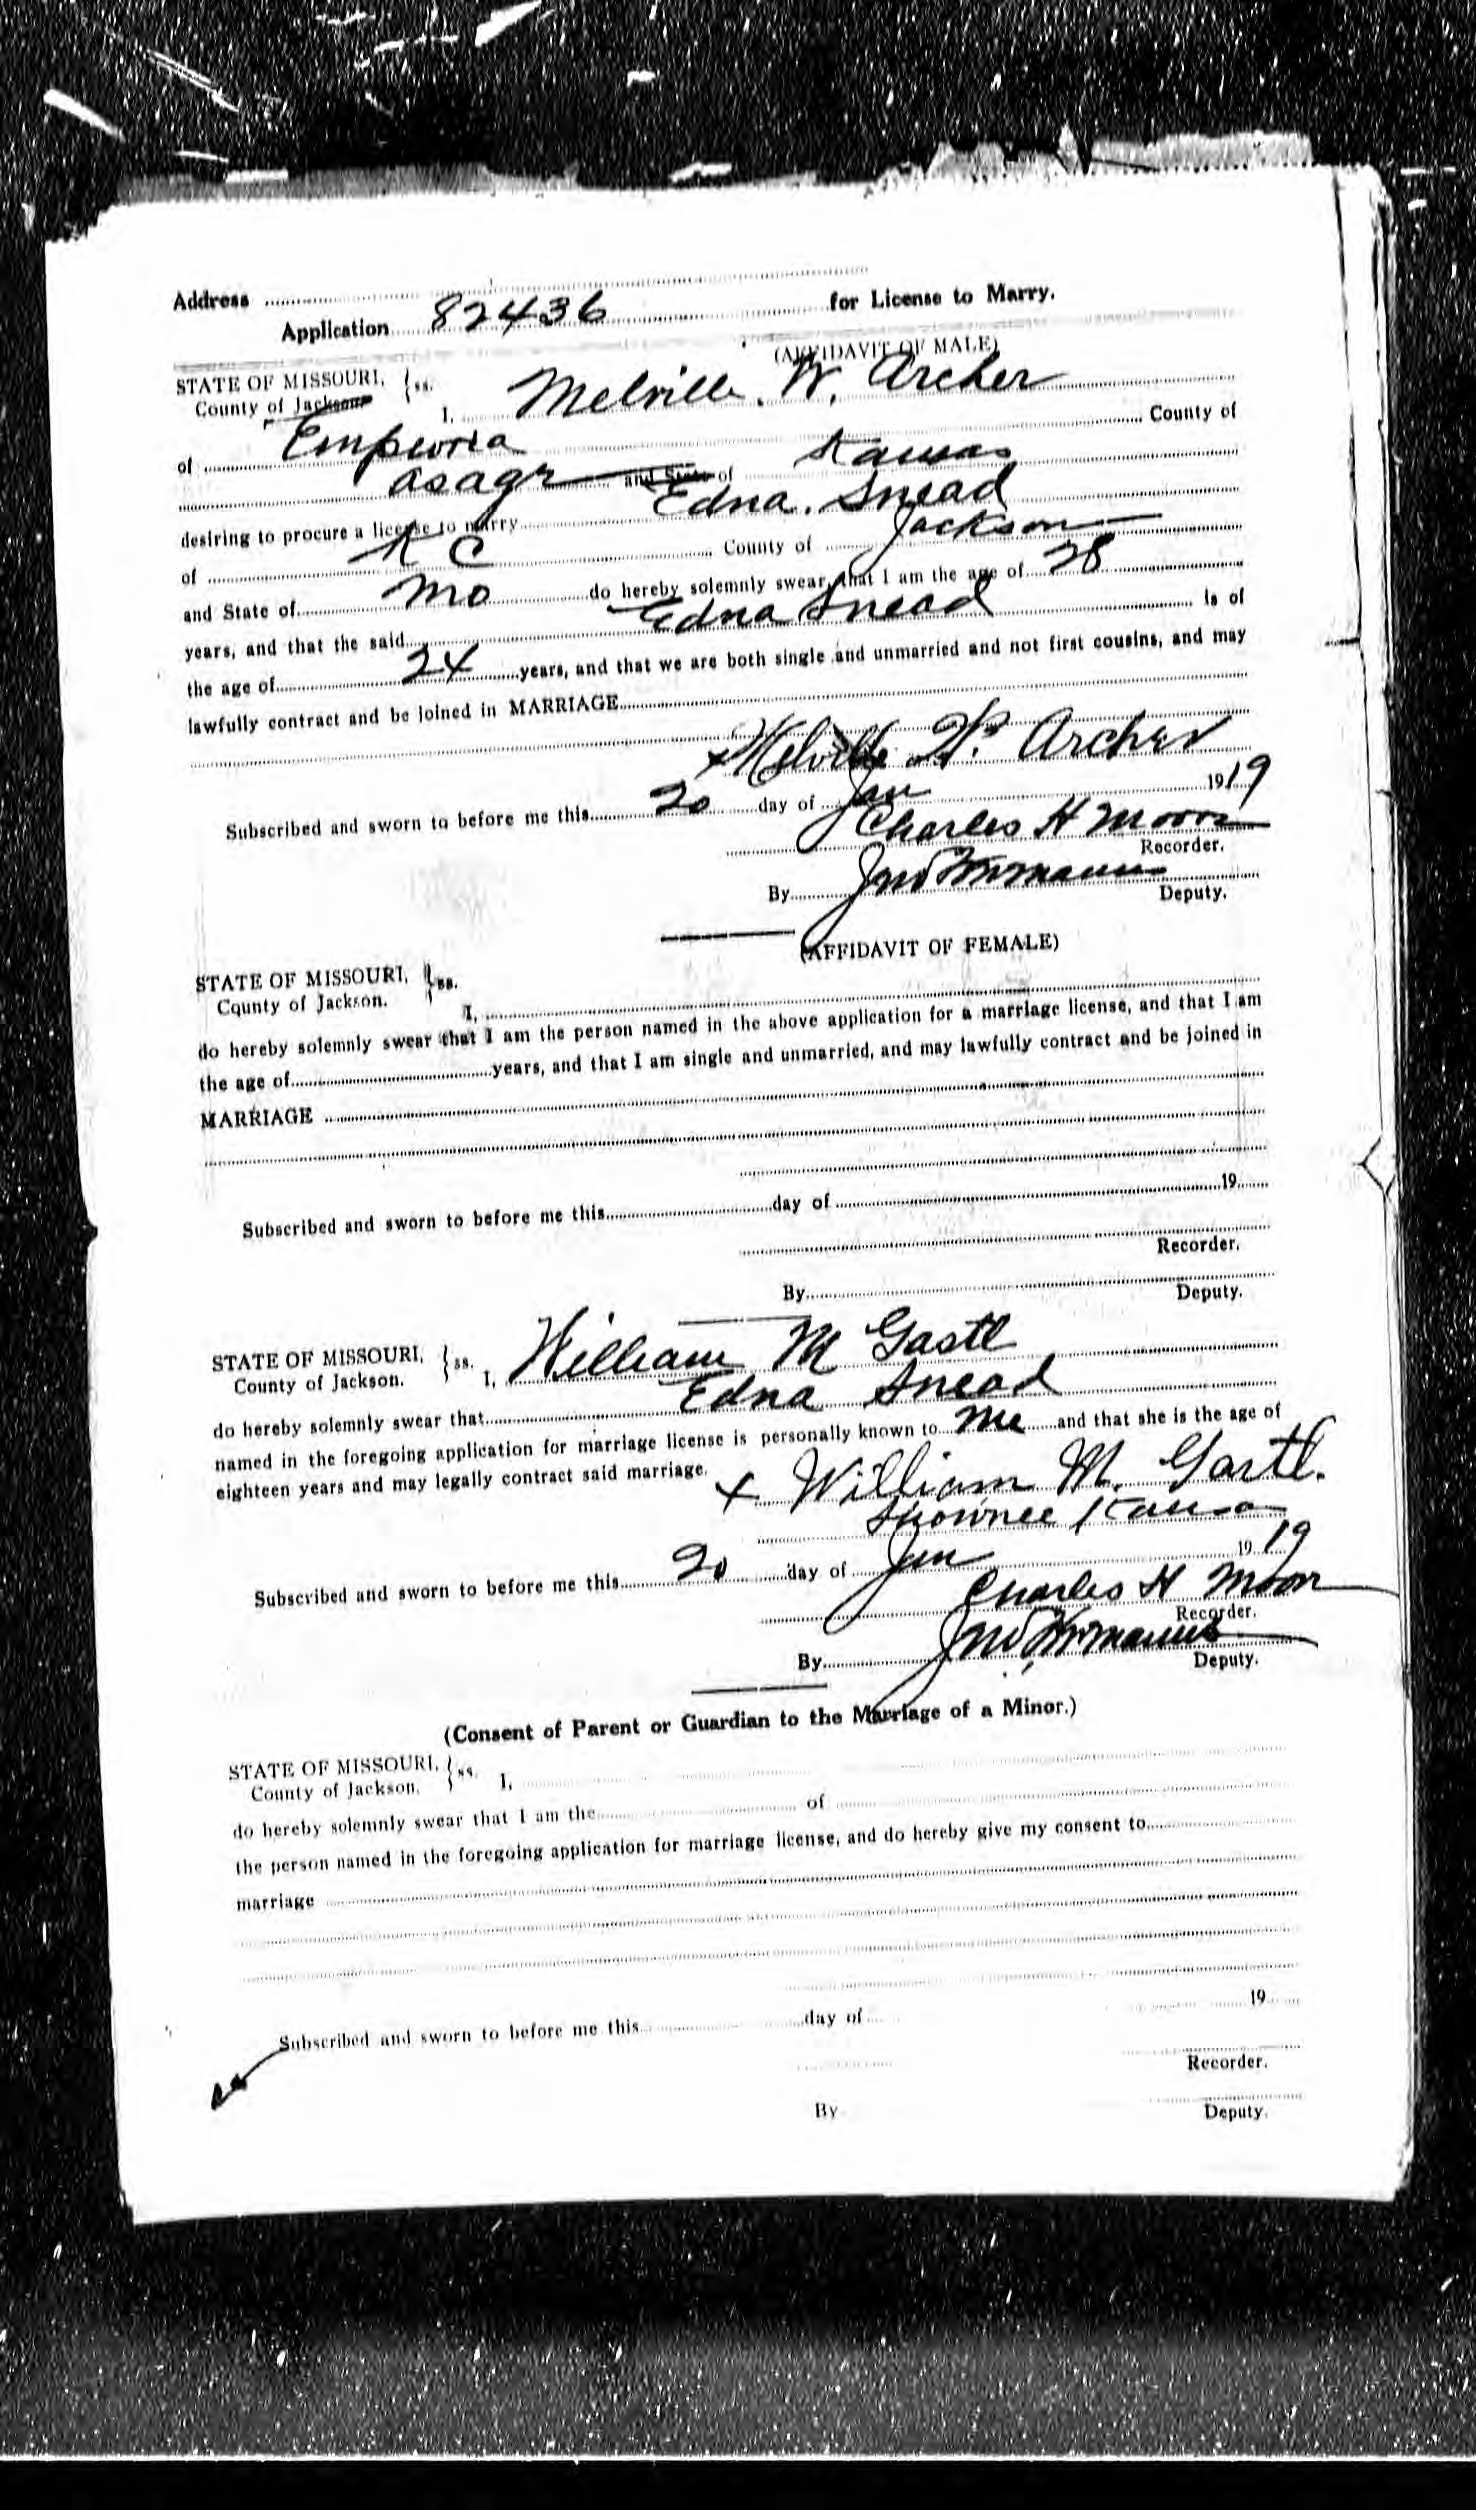 Address
Application 82436 for License to Marry.
(AFFIDAVIT OF MALE)
STATE OF MISSOURI, ss.
County of Jackson
I, Melville. W. Archer
of Emporia County of
Osage and State of Kansas
desiring to procure a license to marry Edna. Snead
of K C County of Jackson
and State of Mo do hereby solemnly swear, that I am the age of 28
years, and that the said Edna Snead is of
the age of 24 years, and that we are both single and unmarried and not first cousins, and may
lawfully contract and be joined in MARRIAGE
x Melville W. Archer
Subscribed and sworn to before me this 20 day of Jan 1919
Charles H Moore
Recorder.
By Jno
Deputy.
(AFFIDAVIT OF FEMALE)
STATE OF MISSOURI, ss.
County of Jackson.
I,
do hereby solemnly swear that I am the person named in the above application for a marriage license, and that I am
the age of years, and that I am single and unmarried, and may lawfully contract and be joined in
MARRIAGE
Subscribed and sworn to before me this day of 19
Recorder.
By
Deputy.
STATE OF MISSOURI, ss.
County of Jackson.
I, William M Gastl
do hereby solemnly swear that Edna Snead
named in the foregoing application for marriage license is personally known to me and that she is the age of
eighteen years and may legally contract said marriage.
x William M. Gastl.
Shawnee Kansas
Subscribed and sworn to before me this 20 day of Jan 1919
Charles H Moore
Recorder.
By Jno
Deputy.
(Consent of Parent or Guardian to the Marriage of a Minor.)
STATE OF MISSOURI, ss.
County of Jackson.
I,
do hereby solemnly swear that I am the of
the person named in the foregoing application for marriage license, and do hereby give my consent to
marriage
Subscribed and sworn to before me this day of 19
Recorder.
By
Deputy.